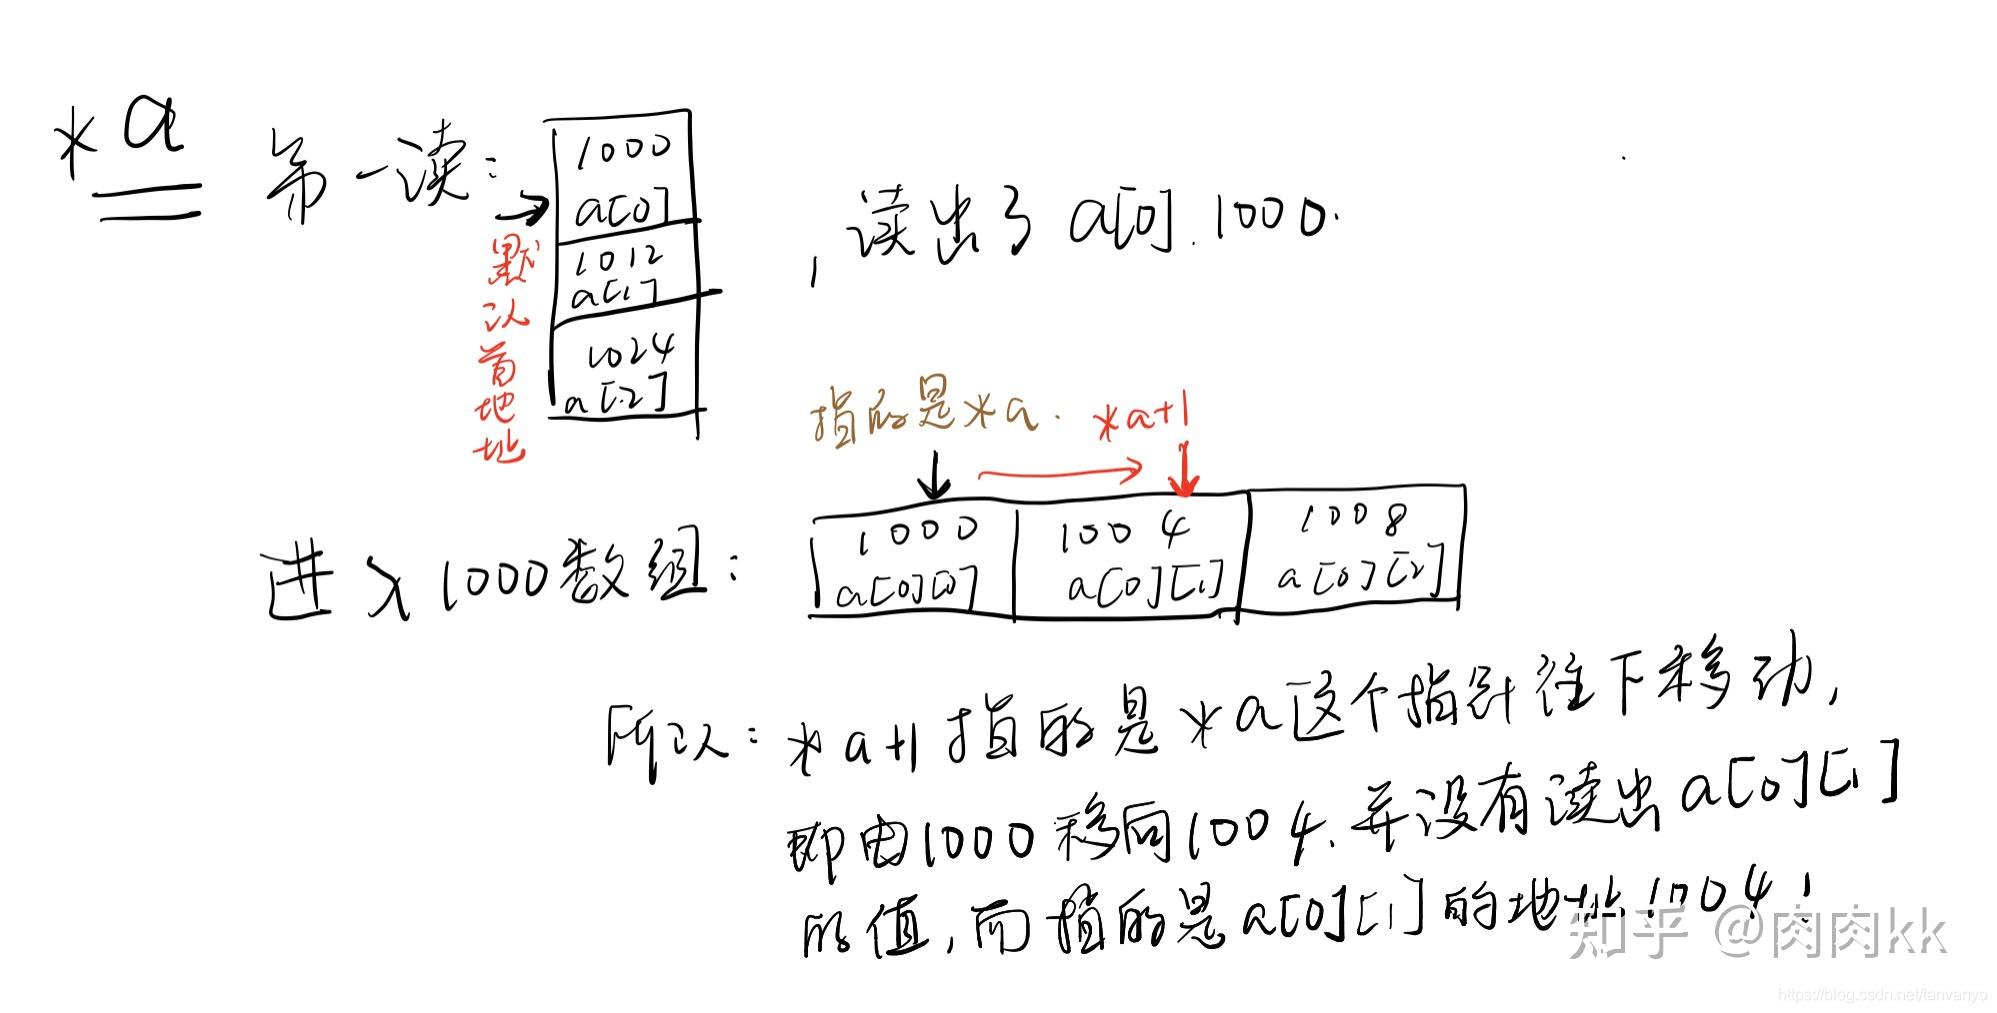 *a 第一读:
1000
a[0]
1012
a[1]
1024
a[2]
默认首地址
,读出了a[0].1000.
指的是*a. *a+1
进入1000数组:
1000
a[0][0]
1004
a[0][1]
1008
a[0][2]
所以:*a+1指的是*a这个指针往下移动,
即由1000移向1004、并没有读出a[0][1]
的值,而指的是a[0][1]的地址1004!
知乎 @肉肉kk
https://blog.csdn.net/tanvanyo